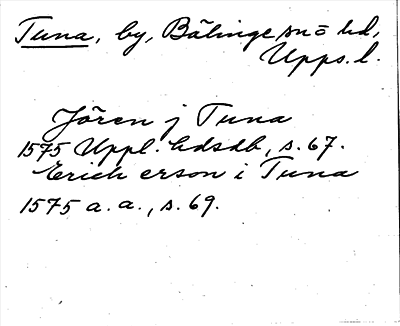 Tuna, by, Bälinge sn o hd,
Upps. l.
Jören j Tuna
1575 Uppl. hdsdb, s. 67.
Erich erson i Tuna
1575 a. a., s. 69.